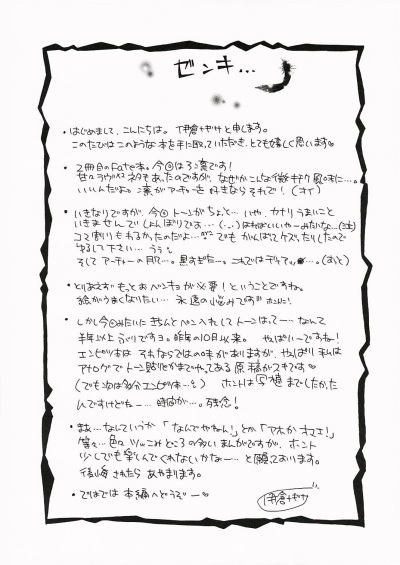 ゼンキ…
・はじめまして、こんにちは。伊倉ナギサと申します。
このたびはこのような本を手に取っていただき、とても嬉しく思います♡
・2冊目のFate本。今回は弓凛です!
甘々ラヴバカネタもあったのですが、なぜかこんな微妙ギャグ風味に…。
いいんだよ。凛がアーチャーを好きならそれで!(オイ)
・いきなりですが、今回トーンがちょっと…いや、カナリうまいこと
いきませんで(しょんぼりでお…(-_-)はればいいやーみたいな…
コマ割りもわるかったのだよ…でもがんばってケズったりしたので
ゆるして下さい…うぅ。
そしてアーチャーの肌で…。黒すぎた…。これではディア…。(おぃ)
・とりあえずもっとおベンキョが必要!ということですね。
絵がうまくなりたい…永遠の悩みですホントに!
・しかし今回みたいにきちんとペン入れしてトーンはって…なんて
半年以上ぶりですヨ。昨年の10月以来。やばいーですね!
エンピツ本はそれならではの味がありますが、やっぱり私は
アナログでトーン貼りとかまでやってある原稿がスキです
(でも次は多分エンピツ本…) ホントは写植までしたかった
んですけどねー…時間が…。残念!
・まあ…なんていうか「なんでやねん!」とか「アホかオマエ!」
等々…色々ツッこみどころの多いまんがですが、ホント
少しでも楽しんでくれないかなー…と願っております。
後悔されたらあやまります。
・ではでは本編へどうぞー
伊倉ナギサ